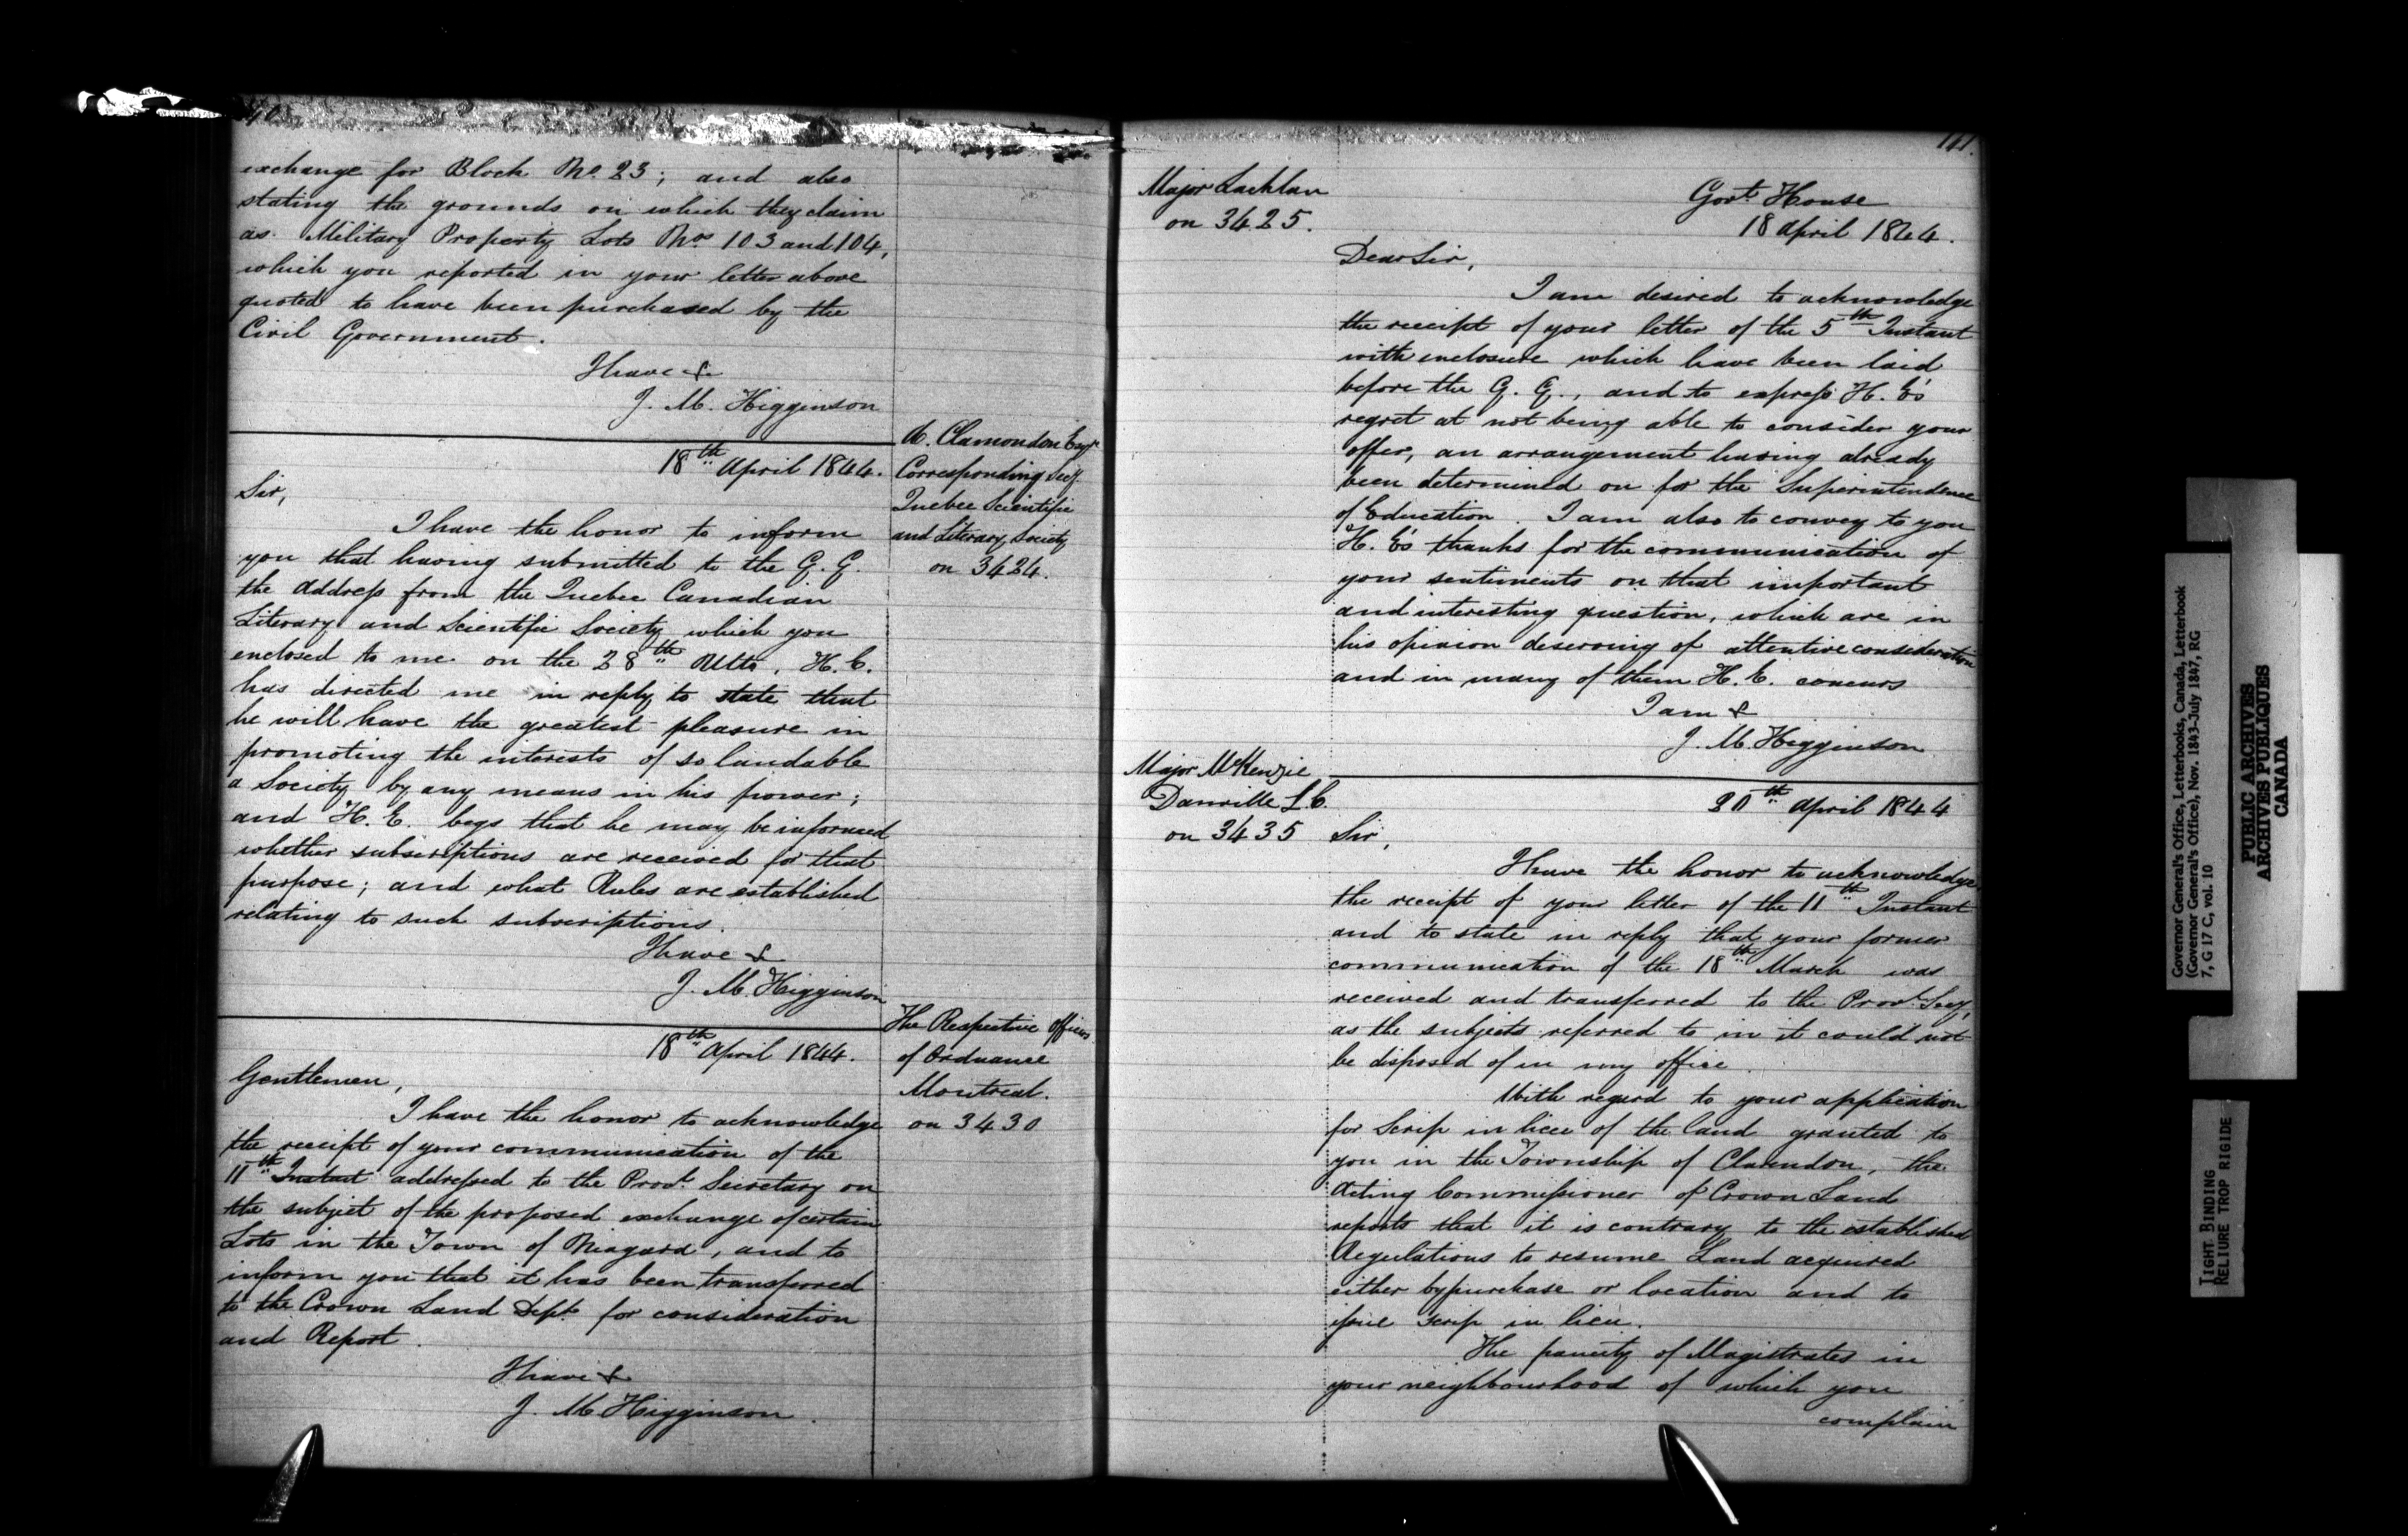 exchange for Block No. 23; and also
stating the grounds on which they claim
as Military Property Lots Nos 103 and 104,
which you reported in your letter above
quoted to have been purchased by the
Civil Government.
I have &
J. M. Higginson
A. Plamondon Esqr.
Corresponding Secy.
Quebec Scientific
and Literary Society
on 3424.
18th April 1844.
Sir,
I have the honor to inform
you that having submitted to the G. G.
the Address from the Quebec Canadian
Literary and Scientific Society which you
enclosed to me on the 28th Ulto, H. E.
has directed me in reply to state that
he will have the greatest pleasure in
promoting the interests of so laudable
a Society by any means in his power;
and H. E. begs that he may be informed
whether subscriptions are received for that
purpose; and what Rules are established
relating to such subscriptions.
I have &
J. M. Higginson
The Respective Officers
of Ordnance
Montreal.
on 3430
18th April 1844.
Gentlemen,
I have the honor to acknowledge
the receipt of your communication of the
11th Instant addressed to the Provl. Secretary on
the subject of the proposed exchange of certain
Lots in the Town of Niagara, and to
inform you that it has been transferred
to the Crown Land Dept. for consideration
and Report.
I have &
J. M. Higginson.
141.
Major Lachlan
on 3425.
Govt. House
18 April 1844.
Dear Sir,
I am desired to acknowledge
the receipt of your letter of the 5th Instant
with enclosure which have been laid
before the G. G., and to express H. E's
regret at not being able to consider your
offer, an arrangement having already
been determined on for the Superintendence
of Education. I am also to convey to you
H. E's thanks for the communication of
your sentiments on that important
and interesting question, which are in
his opinion deserving of attentive consideration
and in many of them H. E. concurs
I am &
J. M. Higginson
Major McKenzie
Danville L.C.
on 3435
20th April 1844
Sir,
I have the honor to acknowledge
the receipt of your letter of the 11th Instant
and to state in reply that your former
communication of the 18th March was
received and transferred to the Provl. Secy,
as the subjects referred to in it could not
be disposed of in my office.
With regard to your application
for Scrip in lieu of the land granted to
you in the Township of Clarendon, the
Acting Commissioner of Crown Land
reports that it is contrary to the established
Regulations to resume Land acquired
either by purchase or location and to
issue Scrip in lieu.
The paucity of Magistrates in
your neighbourhood of which you
complain
Governor General's Office, Letterbooks, Canada, Letterbook
(Governor General's Office), Nov. 1843-July 1847, RG
7, G 17 C, vol. 10
PUBLIC ARCHIVES
ARCHIVES PUBLIQUES
CANADA
TIGHT BINDING
RELIURE TROP RIGIDE